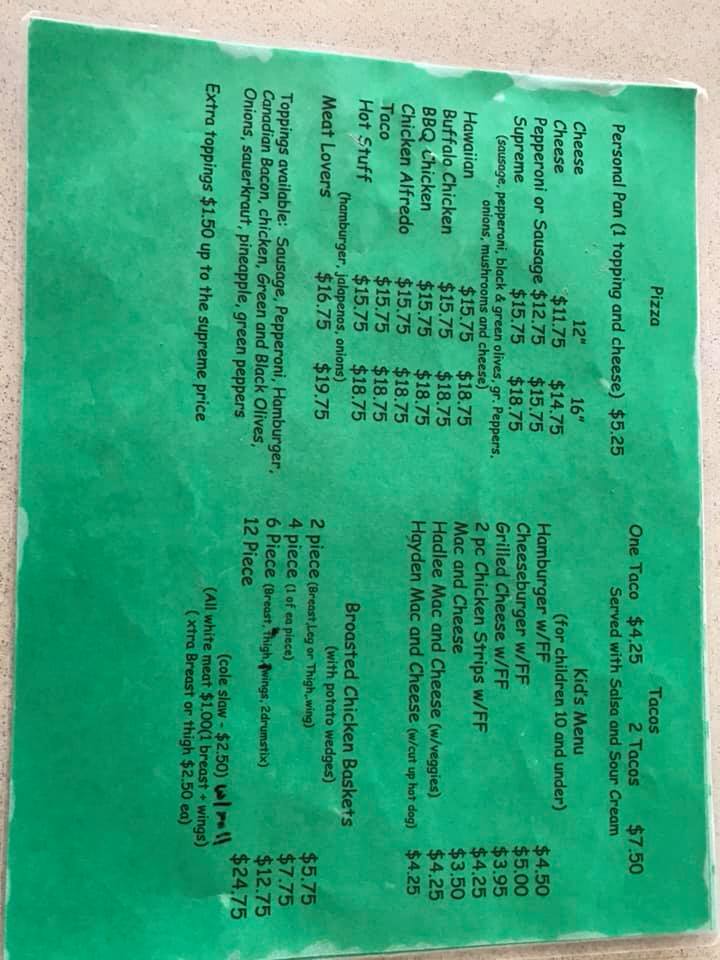 Pizza
Personal Pan (1 topping and cheese) $5.25
12" 16"
Cheese
Cheese $11.75 $14.75
Pepperoni or Sausage $12.75 $15.75
Supreme $15.75 $18.75
(sausage, pepperoni, black & green olives, gr. Peppers,
onions, mushrooms and cheese)
Hawaiian $15.75 $18.75
Buffalo Chicken $15.75 $18.75
BBQ Chicken $15.75 $18.75
Chicken Alfredo $15.75 $18.75
Taco $15.75 $18.75
Hot Stuff $15.75 $18.75
(hamburger, jalapenos, onions)
Meat Lovers $16.75 $19.75
Toppings available: Sausage, Pepperoni, Hamburger,
Canadian Bacon, chicken, Green and Black Olives,
Onions, sauerkraut, pineapple, green peppers
Extra toppings $1.50 up to the supreme price
Tacos
One Taco $4.25 2 Tacos $7.50
Served with Salsa and Sour Cream
Kid's Menu
(for children 10 and under)
Hamburger w/FF $4.50
Cheeseburger w/FF $5.00
Grilled Cheese w/FF $3.95
2 pc Chicken Strips w/FF $4.25
Mac and Cheese $3.50
Hadlee Mac and Cheese (w/veggies) $4.25
Hayden Mac and Cheese (w/cut up hot dog) $4.25
Broasted Chicken Baskets
(with potato wedges)
2 piece (Breast,Leg or Thigh,wing) $5.75
4 piece (1 of ea piece) $7.75
6 Piece (Breast, Thigh, wings, 2drumstix) $12.75
12 Piece $24.75
(cole slaw - $2.50) w/ roll
(All white meat $1.00(1 breast + wings)
( xtra Breast or thigh $2.50 ea)